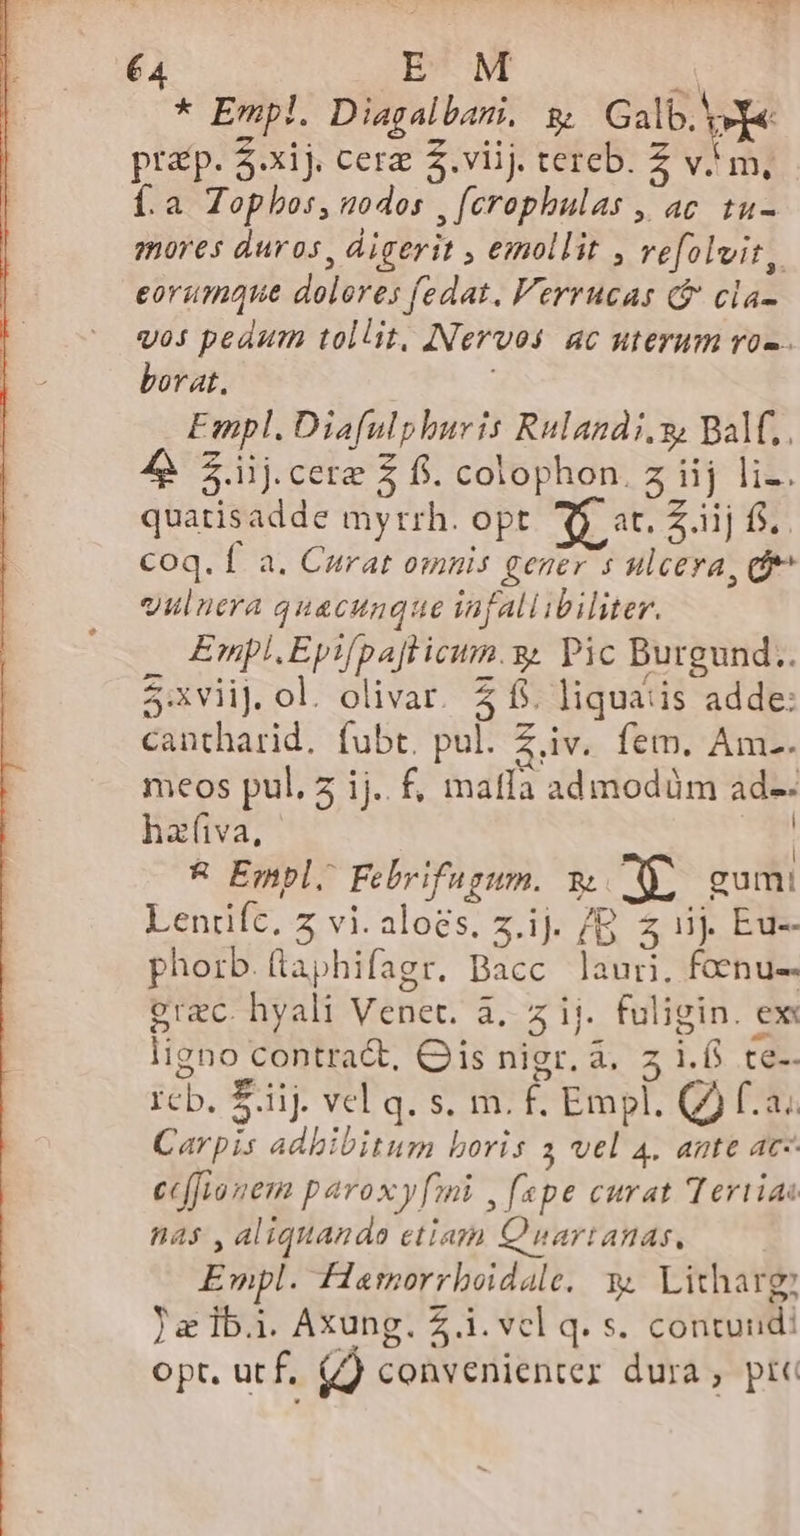 64 E M
* Empl. Diagalbani. ℞ Galb.
præp. ℥.xij. ceræ ℥.viij. tereb. ℥ v. m,
ſ.a Tophos, nodos, ſcrophulas, ac tu-
mores duros, digerit, emollit, reſolvit,
eorumque dolores ſedat. Verrucas & cla-
vos pedum tollit. Nervos ac uterum ro-
borat.
Empl. Diaſulphuris Rulandi. ℞ Balſ.
🜍 ℥.iij. ceræ ℥ ß. colophon. ʒ iij li-
quatis adde myrrh. opt. at. ℥.iij ß.
coq. ſ a. Curat omnis gener s ulcera, &
vulnera quacunque infallibiliter.
Empl. Epiſpaſticum. ℞ Pic Burgund.
℥.xviij. ol. olivar. ℥ ß. liquatis adde:
cantharid. ſubt. pul. ℥.iv. ſem. Am-
meos pul. ʒ ij. f. maſſa admodùm ad-
hæſiva,
* Empl. Febrifugum. ℞ gumi
Lentiſc. ʒ vi. aloës. ʒ.ij. ʒ iij. Eu-
phorb. ſtaphiſagr. Bacc lauri. fœnu-
græc. hyali Venet. ā. ʒ ij. fuligin. ex
ligno contract, is nigr. ā. ʒ i.ß te-
reb. ℥.iij. vel q. s. m. f. Empl. ſ.a.
Carpis adhibitum horis 3 vel 4. ante ac-
ceſſionem paroxyſmi, ſæpe curat Tertia
nas, aliquando etiam Quartanas.
Empl. Hæmorrhoidale. ℞ Litharg:
☽æ ℔.i. Axung. ℥.i. vel q. s. contund
opt. ut f. convenienter dura, pro